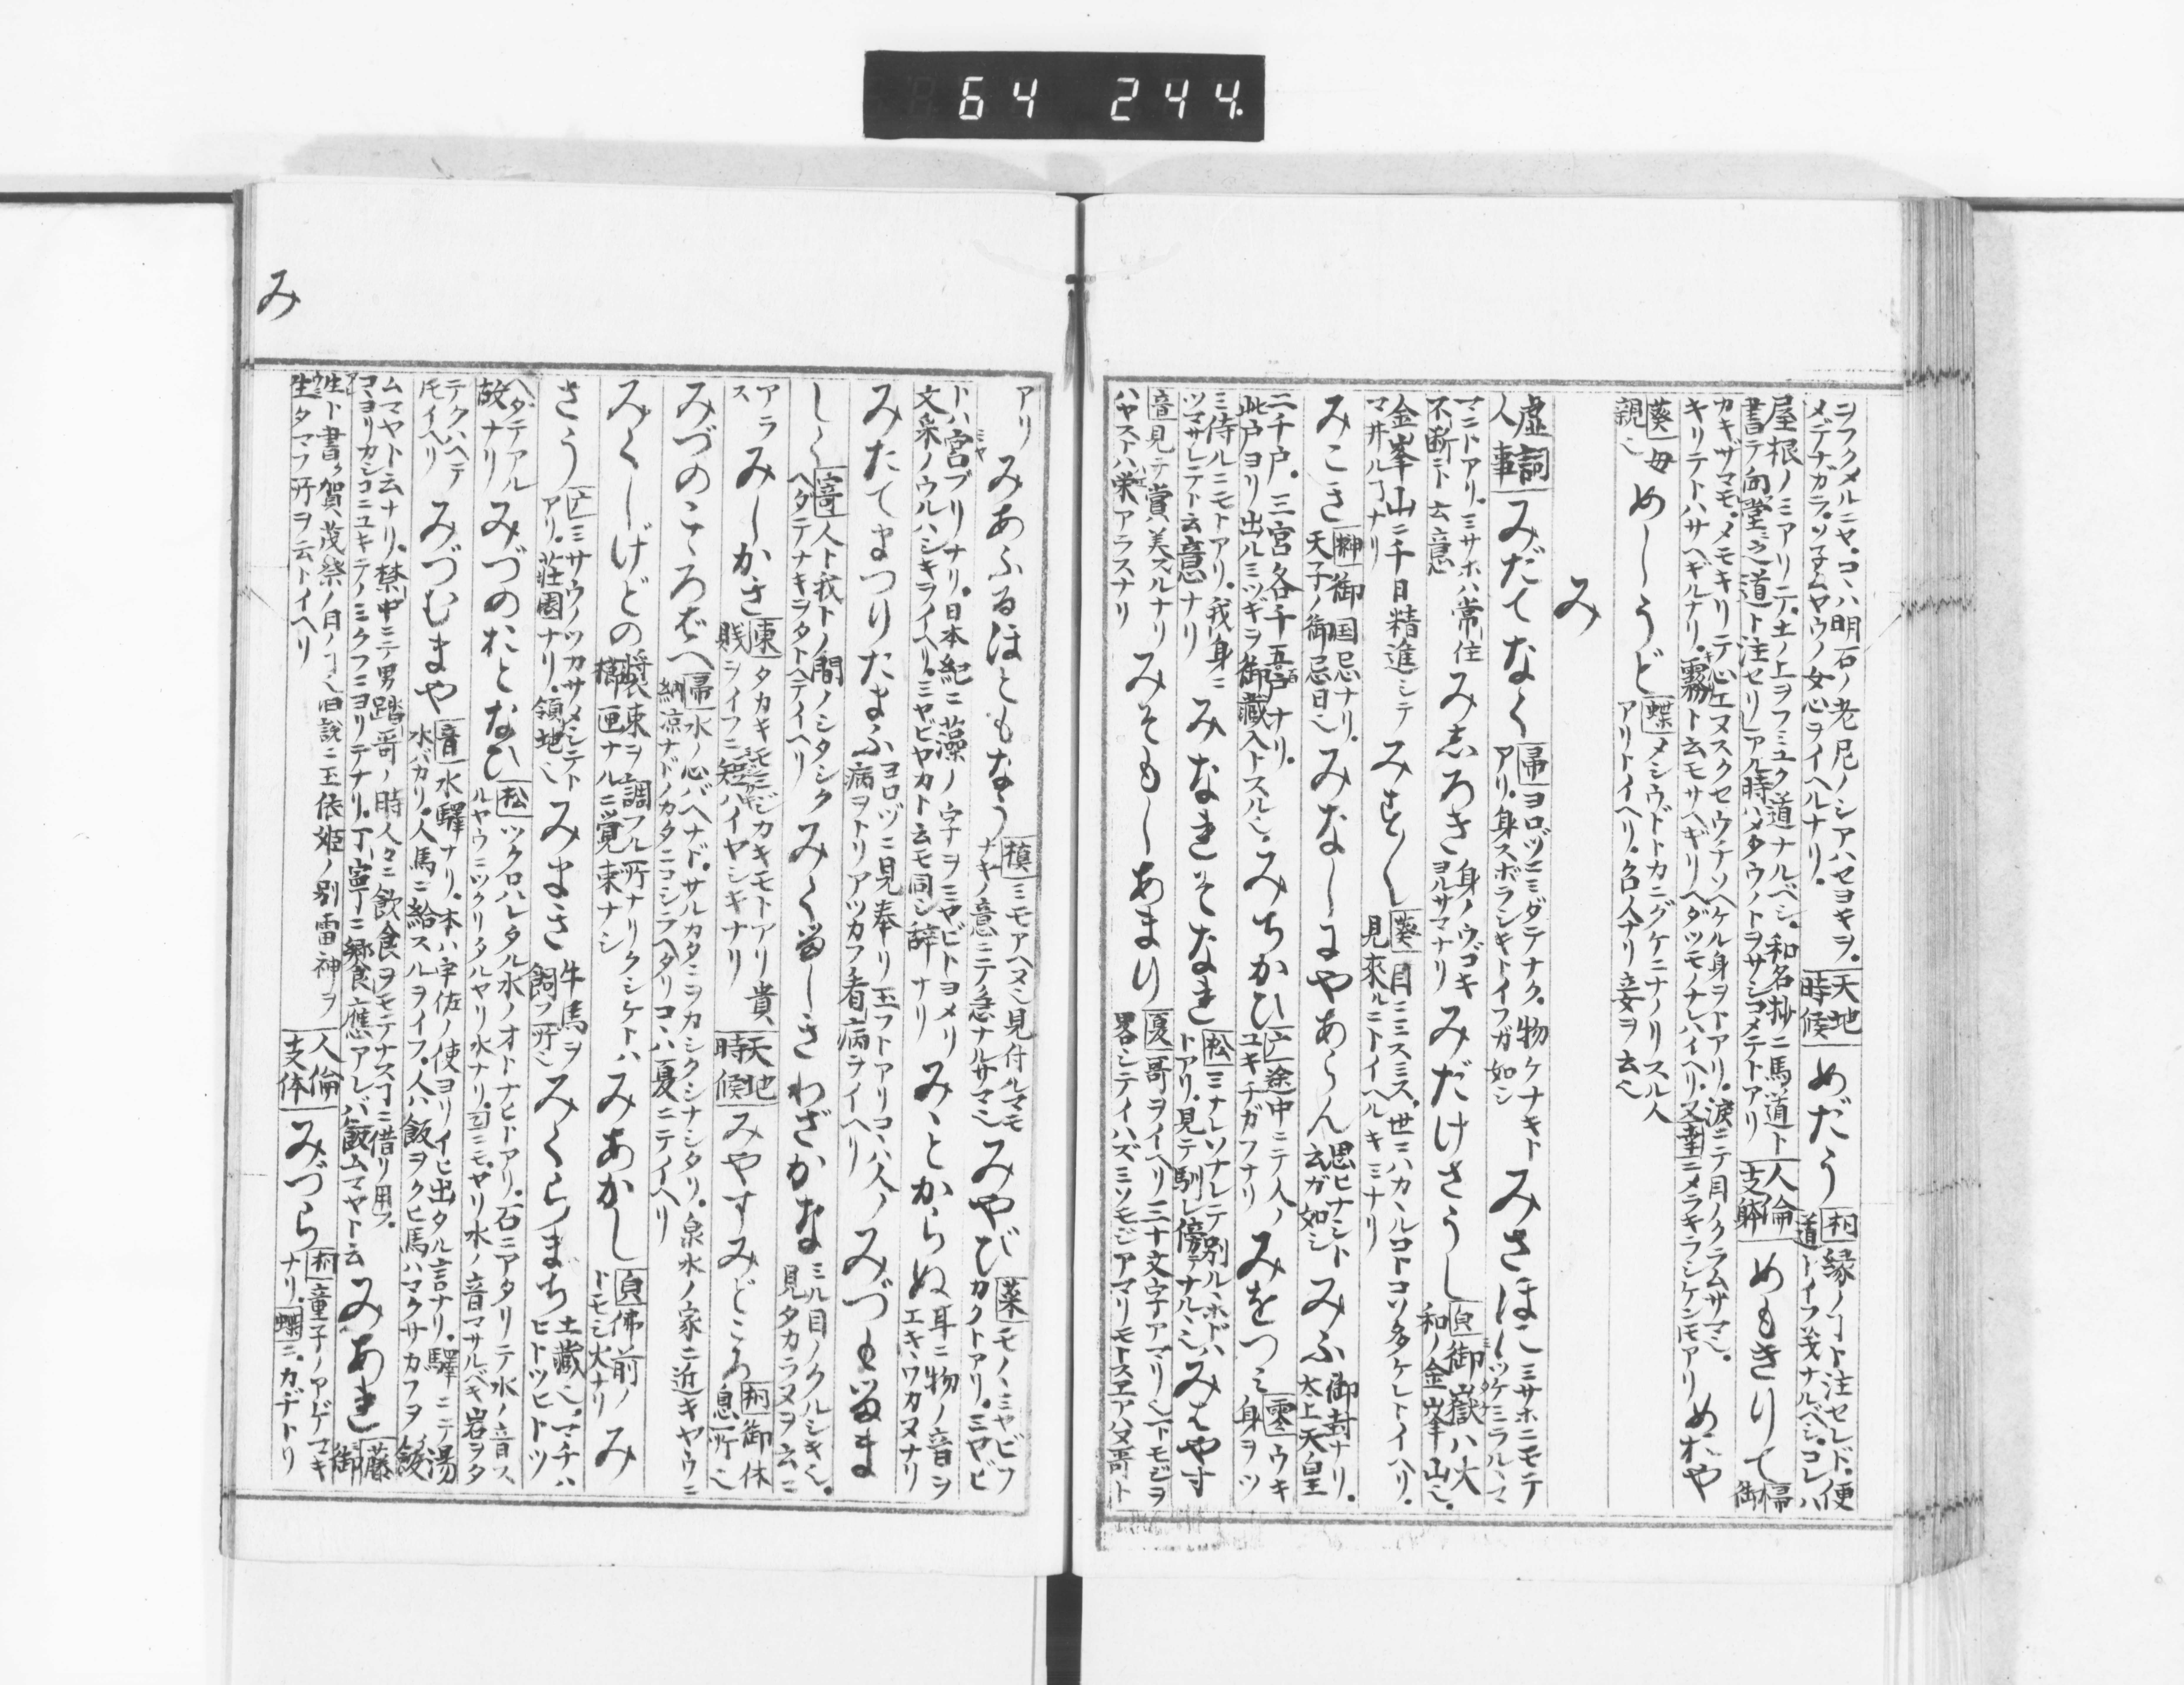 64 244.
ヲフクメルニヤ。コヽハ明石ノ老尼ノシアハセヨキヲ。
メデナガラ。ソ子ムヤウノ女心ヲイヘルナリ。
天地
時候
めだう
桐
縁ノコト注セレド。便
道トイフ義ナルベシ。コレハ
屋根ノミアリテ。土ノ上ヲフミユク道ナルベシ。和名抄ニ馬道ト
書テ向堂之道ト注セリ
アル時ハメタウノトヲサシコメテトアリ
人倫
支躰
めもきりて
帚
カキザマモ。メモキリテ
キリテトハサヘギルナリ。霧ト云モサヘギリヘダツモノナレハイヘリ。又
めおや
葵
母
親也
めしうど
蝶
メシウドトカニグケニナノリスル人
アリトイヘリ。名人ナリ妾ヲ云也
み
虚詞
人事
みだてなく
帚
ヨロヅニミダテナク。物ケナキト
アリ。身スボラシキトイフガ如シ
みさほに
ミサホニモテ
ツケミラルヽマ
マニトアリ。ミサホハ常住
不断ニト云意
みしろき
身ノウゴキ
ヨルサマナリ
みだけさうし
御嶽ハ大
和ノ金峯山也。
金峯山ニ千日精進シテ
マ井ルコナリ
みすく
葵
目ニミスミス。世ニハカヽルコトコソ多ケレトイハリ。
見來ルニトイヘルキミナリ
みこき
榊
御国忌ナリ。
天子ノ御忌日也
みなしにやあらん
思ヒナシト
云ガ如シ
みふ
御封ナリ。
太上天皇
二千戸。三宮各千五百戸ナリ。
此戸ヨリ出ルミツギヲ御藏入トスル也
みちかひ
途中ニテ人ノ
ユキチガフナリ
みをつみ
澪
ウキ
身ヲツ
ミ侍ルニモトアリ。我身ニ
ツマサレテト云意ナリ
みなれそなれ
松
ミナレソナレテ別ルヽホドハ
トアリ。見テ馴レ傍ナル也
みはやす
音
見テ賞美スルナリ
ハヤストハ栄アラスナリ
みそもしあまり
夏
哥ヲイヘリ三十文字アマリ一トモジヲ
畧シテイハズミソモジアマリモトスエアハヌ哥ト
み
アリ
みあふるほともなう
槙
ミモアヘヌ也見付ルマモ
ナキノ意ニテ急ナルサマ也
みやび
葉
モノヽミヤビフ
カクトアリ。ミヤビ
トハ宮ブリナリ。日本紀ニ藻ノ字ヲミヤビトヨメリ
文采ノウルハシキヲイヘリ。ミヤビヤカト云モ同シ辞ナリ
みゝとからぬ
耳ニ物ノ音ヲ
エキヽワカヌナリ
みたてまつりたまふ
ヨロヅニ見奉リ玉フトアリコヽハ人ノ
病ヲトリアツカフ看病ヲイヘリ
みづもるま
しく
寄
人ト我トノ間ノシタシク
ヘタテナキヲタトヘテイヘリ
みくるしきわざかな
ミル目ノクルシキ也。
見タカラヌヲ云ニ
アラ
ス
みしかき
東
タカキモミジカキモトアリ貴
賤ヲイフニ短ハイヤシキナリ
天地
時候
みやすみどころ
桐
御休
息所也
みづのこゝろばへ
帚
水ノ心バヘナド。サルカタニヲカシクシナシタリ。泉水ノ家ニ近キヤウニ
納涼ナドノカタニコシラヘタリコヽハ夏ニテイヘリ
みくしげどの
装束ヲ調フル所ナリクシケトハ
櫛匣ナルニ覚束ナシ
みあかし
佛前ノ
トモシ火ナリ
み
さう
ミサウノツカサメシテト
アリ。荘園ナリ。領地也
みまき
牛馬ヲ
飼フ所也
みくらまち
土藏也。マチハ
ヒトツヒトツ
ヘダテアル
故ナリ
みづのおとなひ
松
ツクロハレタル水ノオトナヒトアリ。石ニアタリテ水ノ音ス
ルヤウニツクリタルヤリ水ナリ。ヤリ水ノ音マサルベキ岩ヲタ
テクハヘテ
モイヘリ
みづむまや
音
水驛ナリ。本ハ宇佐ノ使ヨリイヒ出タル言ナリ。驛ニテ湯
水バカリ。人馬ニ給スルヲイフ。人ハ飯ヲクヒ馬ハマクサカフヲ飯
ムマヤト云ナリ。禁中ニテ男踏哥ノ時人々ニ飲食ヲモテナスコニ借リ用フ。
コマヨリカシコニユキテノミクフニヨリテナリ。丁寧ニ饗應アレバ飯ムマヤト云
みあれ
藤
御
生ト書ク賀茂祭ノ日ノコ也旧説ニ玉依姫ノ別雷神ヲ
生タマフ所ヲ云トイヘリ
人倫
支体
みづら
桐
童子ノアゲマキ
ナリ。蝶ニ。カザトリ